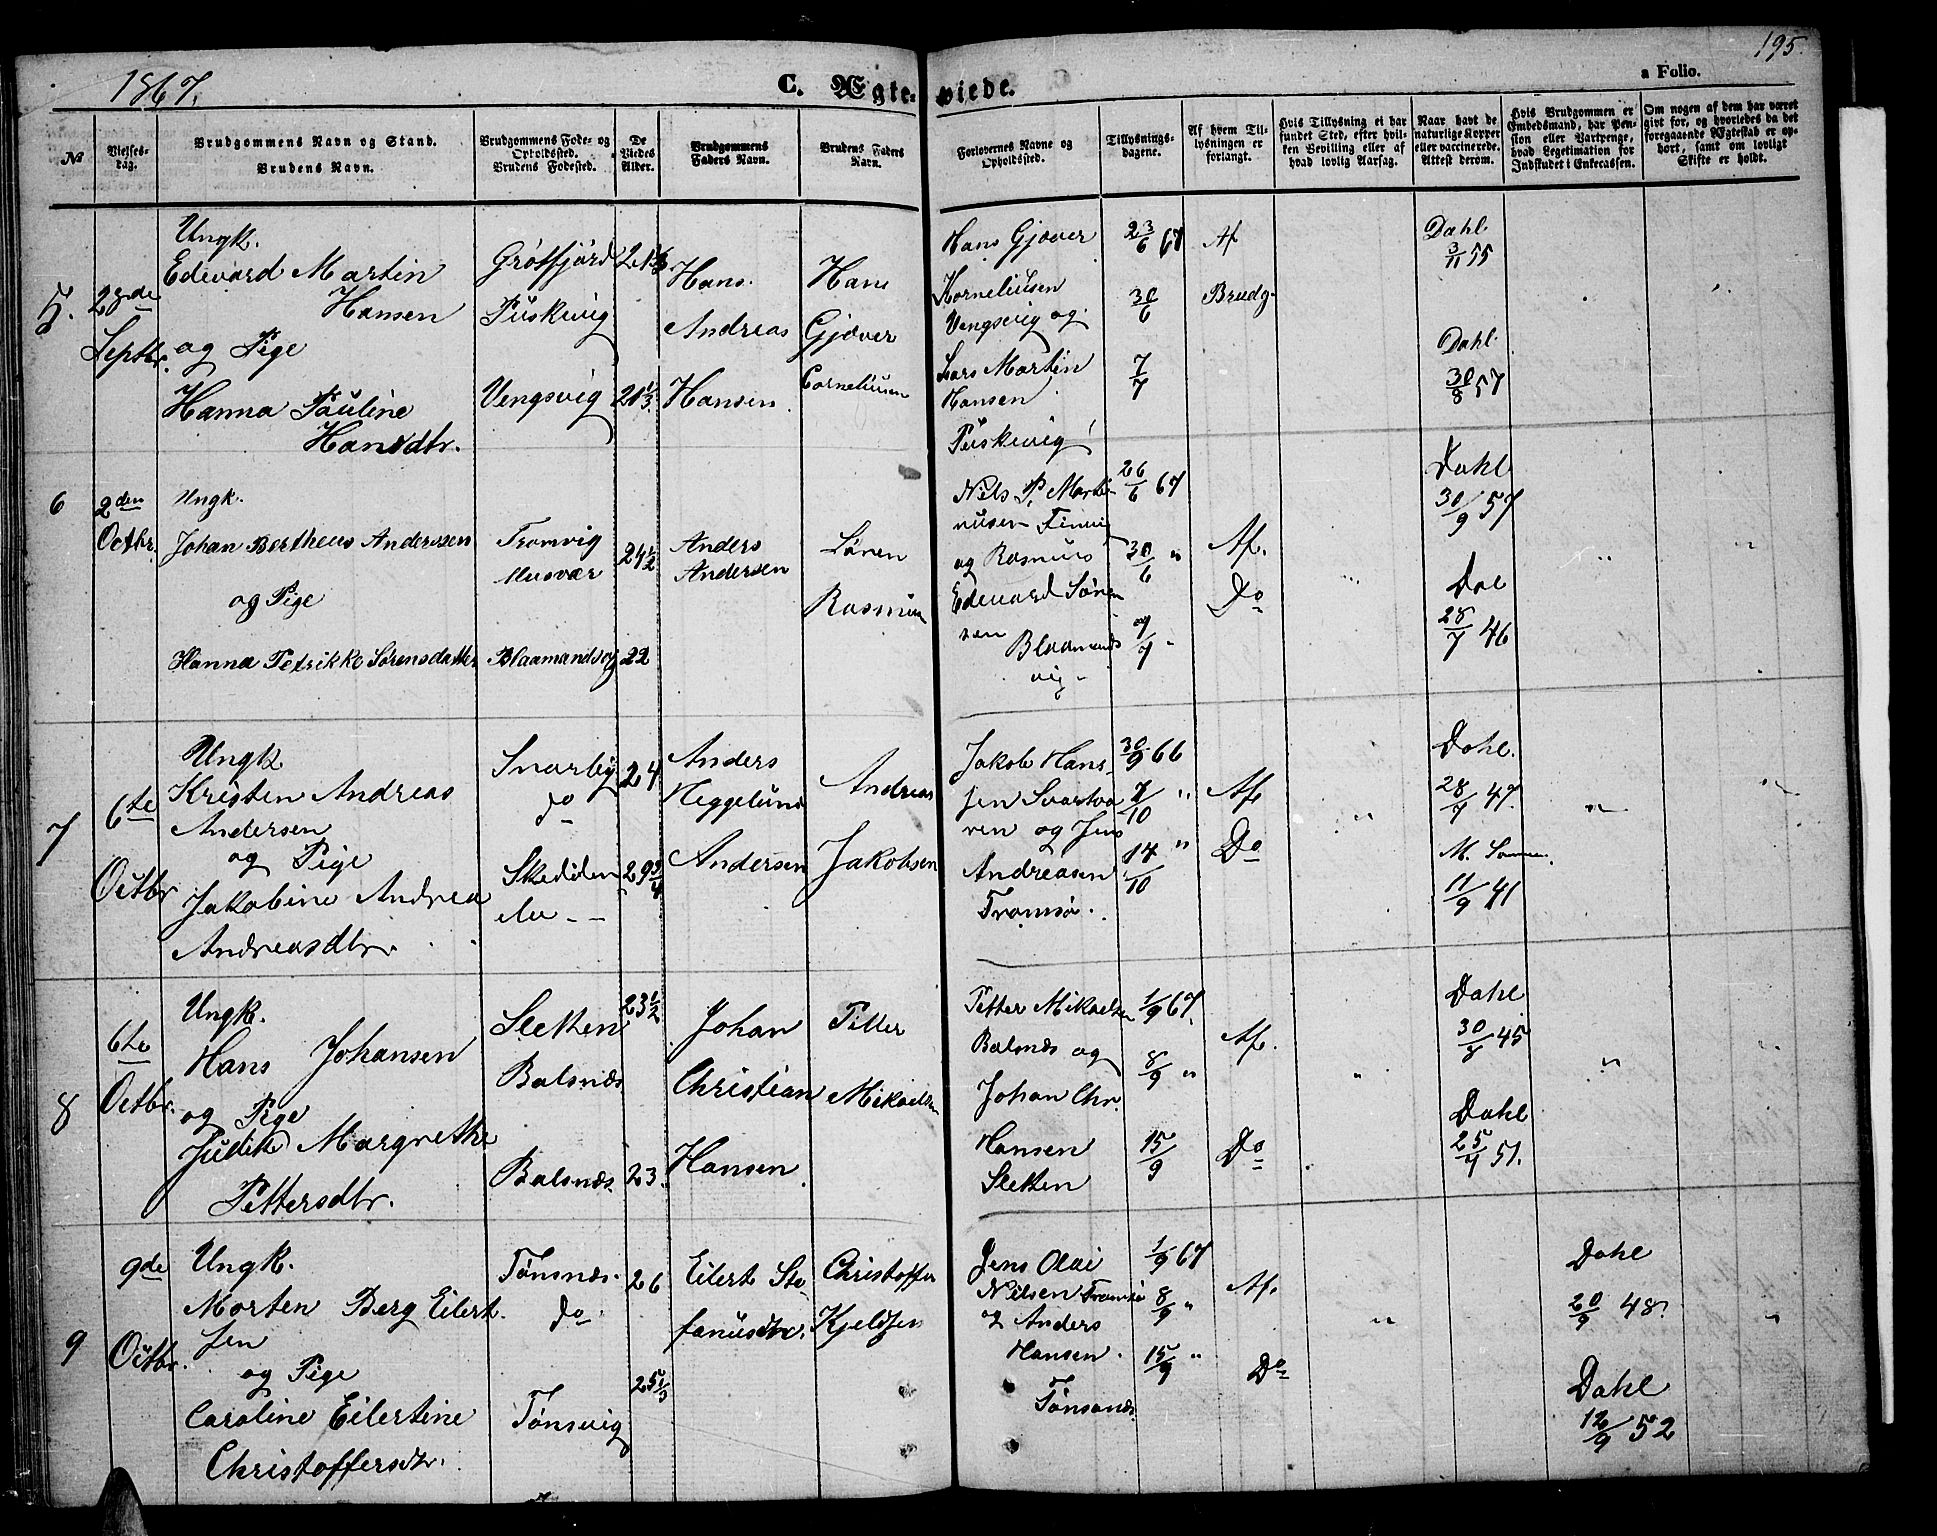 1867.
C. Ægteviede.
195.
a Folio.
No
Vielses-dag.
Brudgommens Navn og Stand.
Brudens Navn.
Brudgommens Føde- og Opholdssted.
Brudens Fødested.
De Viedes Alder.
Brudgommens Faders Navn.
Brudens Faders Navn.
Forlovernes Navne og Opholdssted.
Tillysnings-dagene.
Af hvem Til-lysningen er forlangt.
Hvis Tillysning ei har fundet Sted, efter hvil-ken Bevilling eller af hvad lovlig Aarsag.
Naar havt de naturlige Kopper eller vaccinerede. Attest derom.
Hvis Brudgommen er Embedsmand, har Pen-sion eller Vartpenge, hvad Legitimation for Indskudet i Enkecassen.
Om nogen af dem har været givt før, og hvorledes da det foregaaende Ægteskab er op-hørt, samt om lovligt Skifte er holdt.
5.
28de
Septbr.
Ungk.
Edevard Martin
Hansen
og Pige
Hanna Pauline
Hansdtr.
Grøtfjord
Püskevig
Vengsvig
21 1/3
Hans
Andreas
Hansen
Hans
Gjæver
Corneliusen
Hans Gjæver
Korneliusen
Vengsvig og
Lars Martin
Hansen
Püskevig
23/6 67
30/6
7/7
Af
Brudg.
Dahl
3/11 55
Dahl
30/8 57
6
2den
Octbr.
Ungk.
Johan Bertheus Anderssen
og Pige
Hanna Petrikke Sørensdatter
Tromvig
Musvær
Blaamandsvig
24 1/2
22
Anders
Andersen
Søren
Rasmusen
Nils P. Marti-
nusen
og Rasmus
Edevard Søren
sen Blaamands
vig
26/6 67
30/6 "
7/7 "
Af.
Do
Dahl
30/9 57
Dal
28/7 46
7
6te
Octbr
Ungk
Kristen Andreas
Andersen
og Pige
Jakobine Andrea
Andreasdtr
Snarby
do
24
29 3/4
Anders
Heggelund
Andersen
Andreas
Jakobsen
Jakob Hans-
sen Svartva
ren og Jens
Andreasen
Tromsø.
30/9 66
7/10 "
14/10 "
Af
Do
Dahl.
28/7 47
11/9 41
8
6te
Octbr.
Ungk.
Hans Johansen
og Pige
Judik Margrethe
Pettersdtr.
Sletten
Balsnæs
Balsnæs
23 1/2
23.
Johan
Christian
Hansen
Petter
Mikaelsen
Petter Mikaelsen
Balsnæs og
Johan Chr.
Hansen
Sletten
1/9 67.
8/9 "
15/9
Af.
Do
Dahl
30/8 45
Dahl
25/7 51.
9
9de
Octbr.
Ungk.
Morten Berg Eilert
sen
og Pige
Caroline Eilertine
Christoffersdtr.
Tønsnæs.
do
Tønsvig
26
25 1/3
Eilert Ste
fanusen
Christoffer
Kjeldsen
Jens Olai
Nilsen Tromsø
og Anders
Hansen.
Tønsnæs
1/9 67
8/9 "
15/9 "
Af.
Do
Dahl
20/9 48.
Dahl
12/9 52